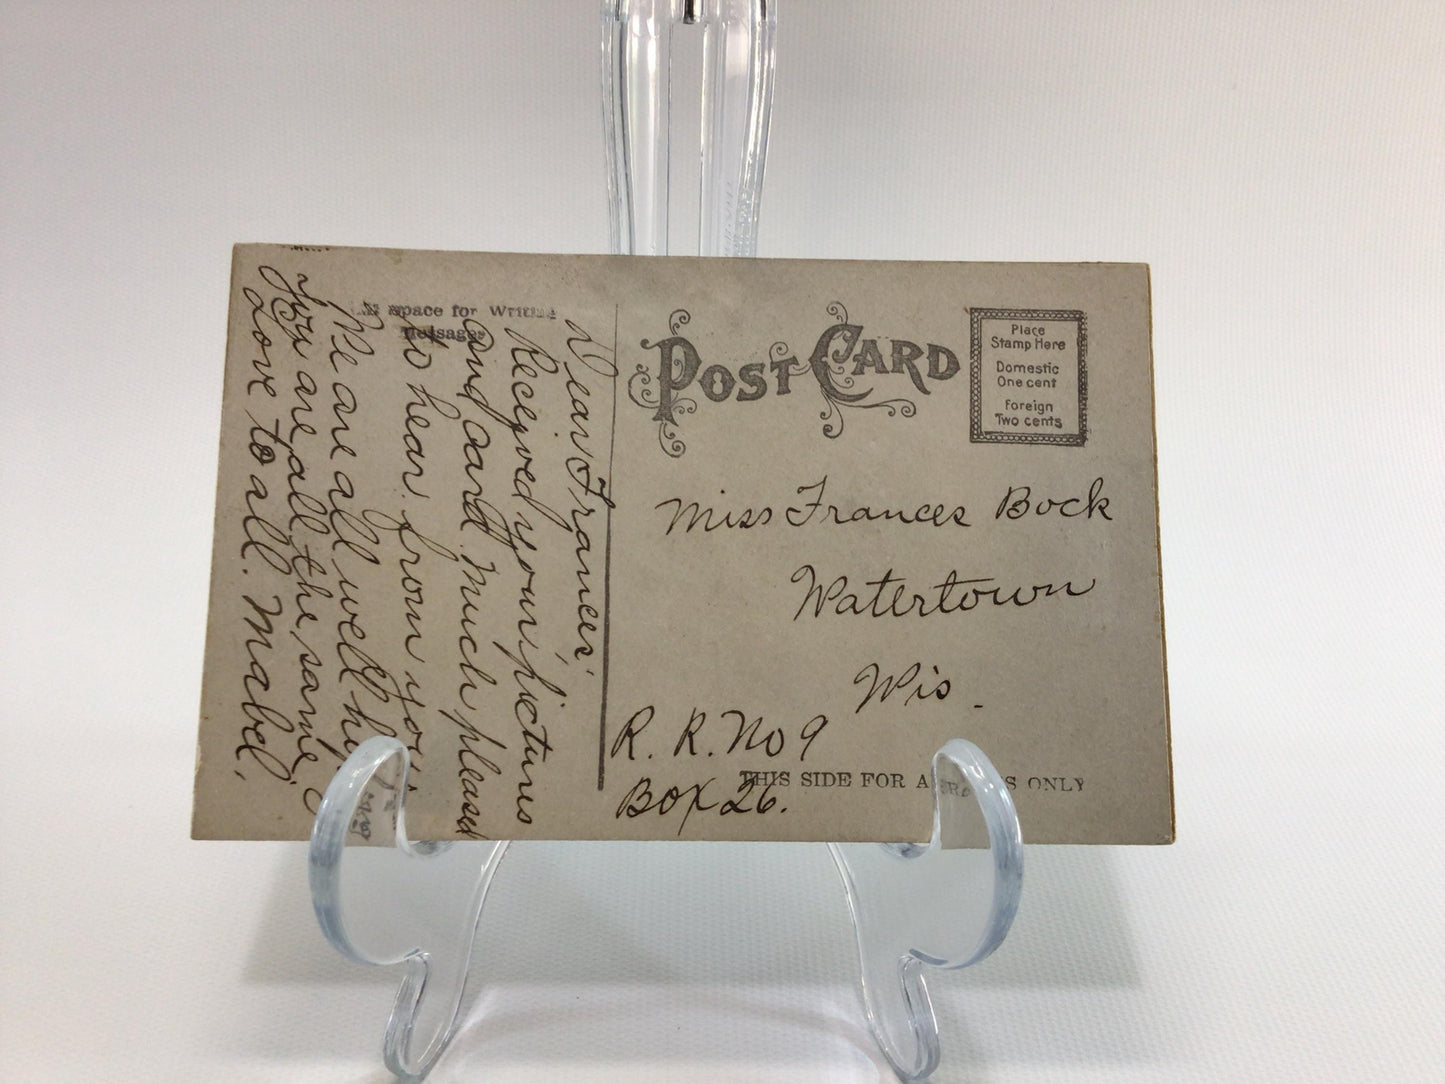 space for Writing
Messages
POST CARD
Place
Stamp Here
Domestic
One cent
Foreign
Two cents
Dear Frances:
Received your pictures
and card. Much pleased
to hear from you.
We are all well
you are all the same.
Love to all. Mabel.
Miss Frances Bock
Watertown
Wis.
R. R. No 9
Box 26.
THIS SIDE FOR ADDRESS ONLY